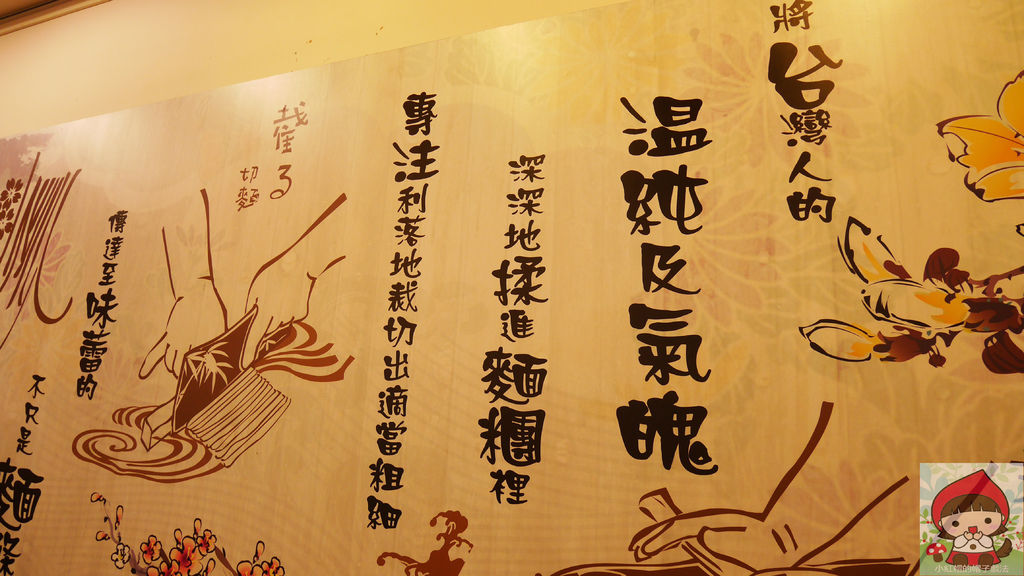 將台灣人的
温純及氣魄
深深地揉進麵糰裡
專注利落地裁切出適當粗細
截る
切麵
傳達至味蕾的
不只是麵條
小紅帽的帽子戲法